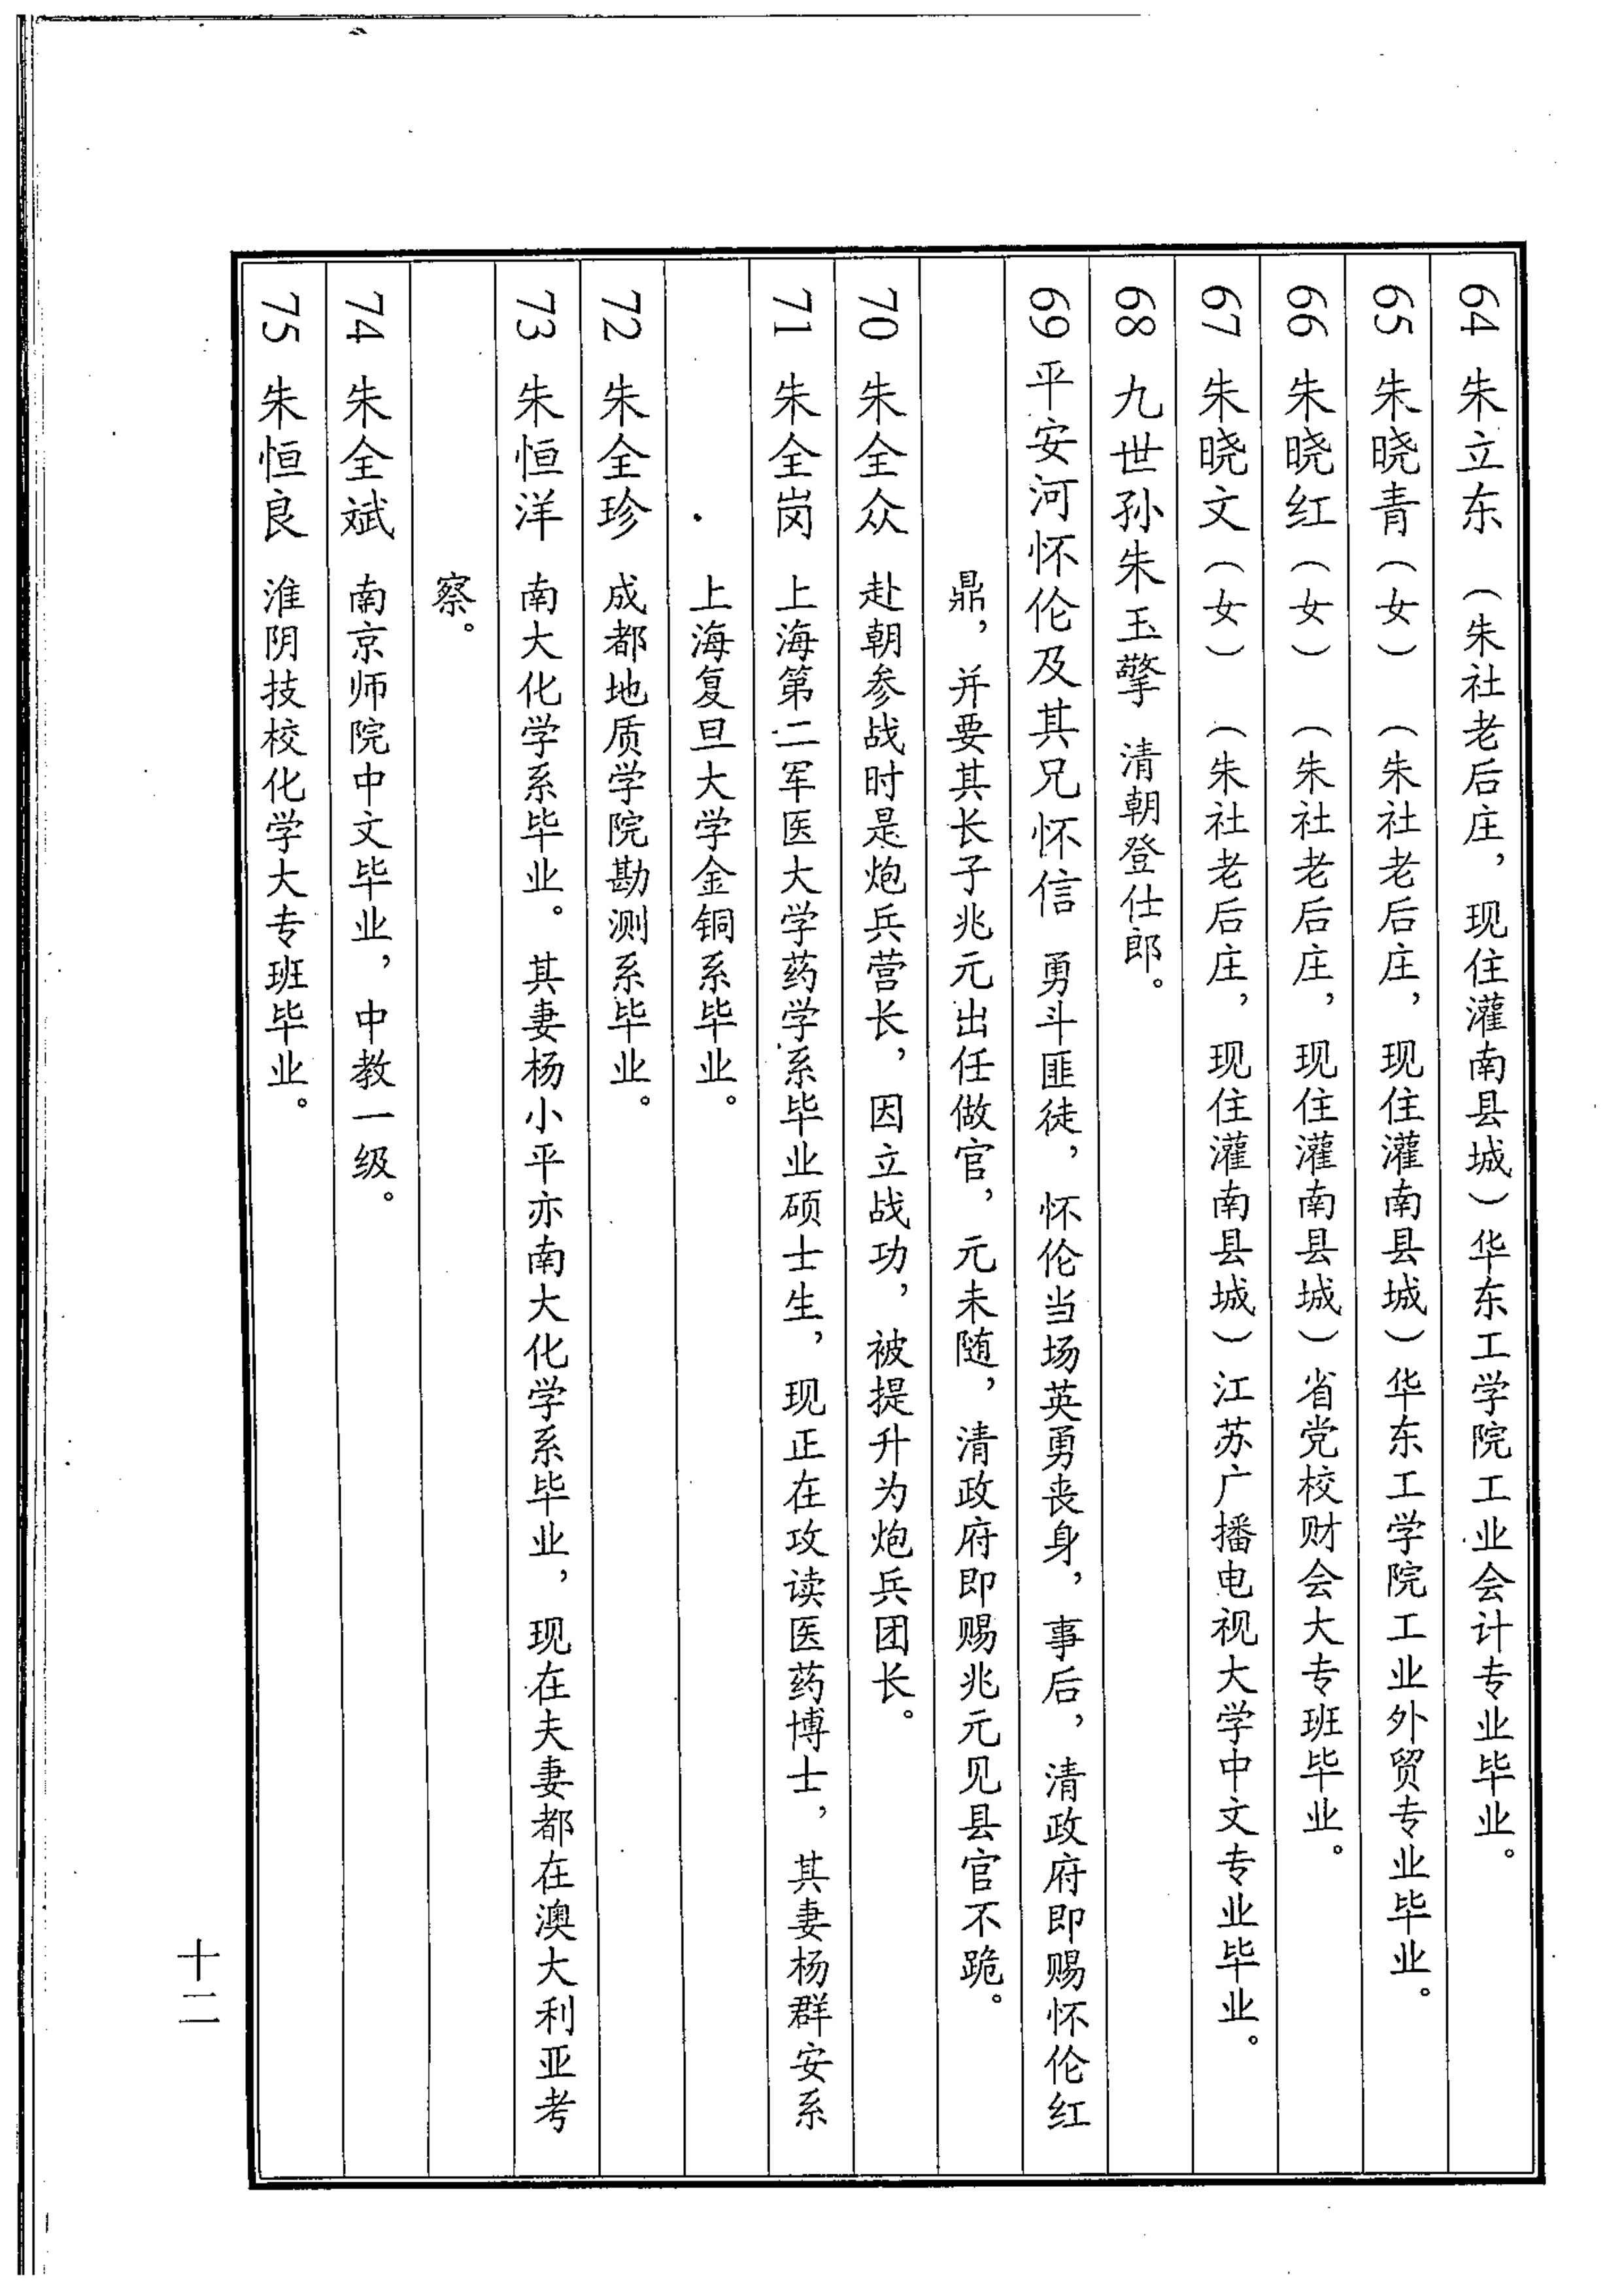 64 朱立东 （朱社老后庄，现住灌南县城）华东工学院工业会计专业毕业。
65 朱晓青（女）（朱社老后庄，现住灌南县城）华东工学院工业外贸专业毕业。
66 朱晓红（女）（朱社老后庄，现住灌南县城）省党校财会大专班毕业。
67 朱晓文（女）（朱社老后庄，现住灌南县城）江苏广播电视大学中文专业毕业。
68 九世孙朱玉擎 清朝登仕郎。
69 平安河怀伦及其兄怀信 勇斗匪徒，怀伦当场英勇丧身，事后，清政府即赐怀伦红
鼎，并要其长子兆元出任做官，元未随，清政府即赐兆元见县官不跪。
70 朱全众 赴朝参战时是炮兵营长，因立战功，被提升为炮兵团长。
71 朱全岗 上海第二军医大学药学系毕业硕士生，现正在攻读医药博士，其妻杨群安系
上海复旦大学金铜系毕业。
72 朱全珍 成都地质学院勘测系毕业。
73 朱恒洋 南大化学系毕业。其妻杨小平亦南大化学系毕业，现在夫妻都在澳大利亚考
察。
74 朱全斌 南京师院中文毕业，中教一级。
75 朱恒良 淮阴技校化学大专班毕业。
十二